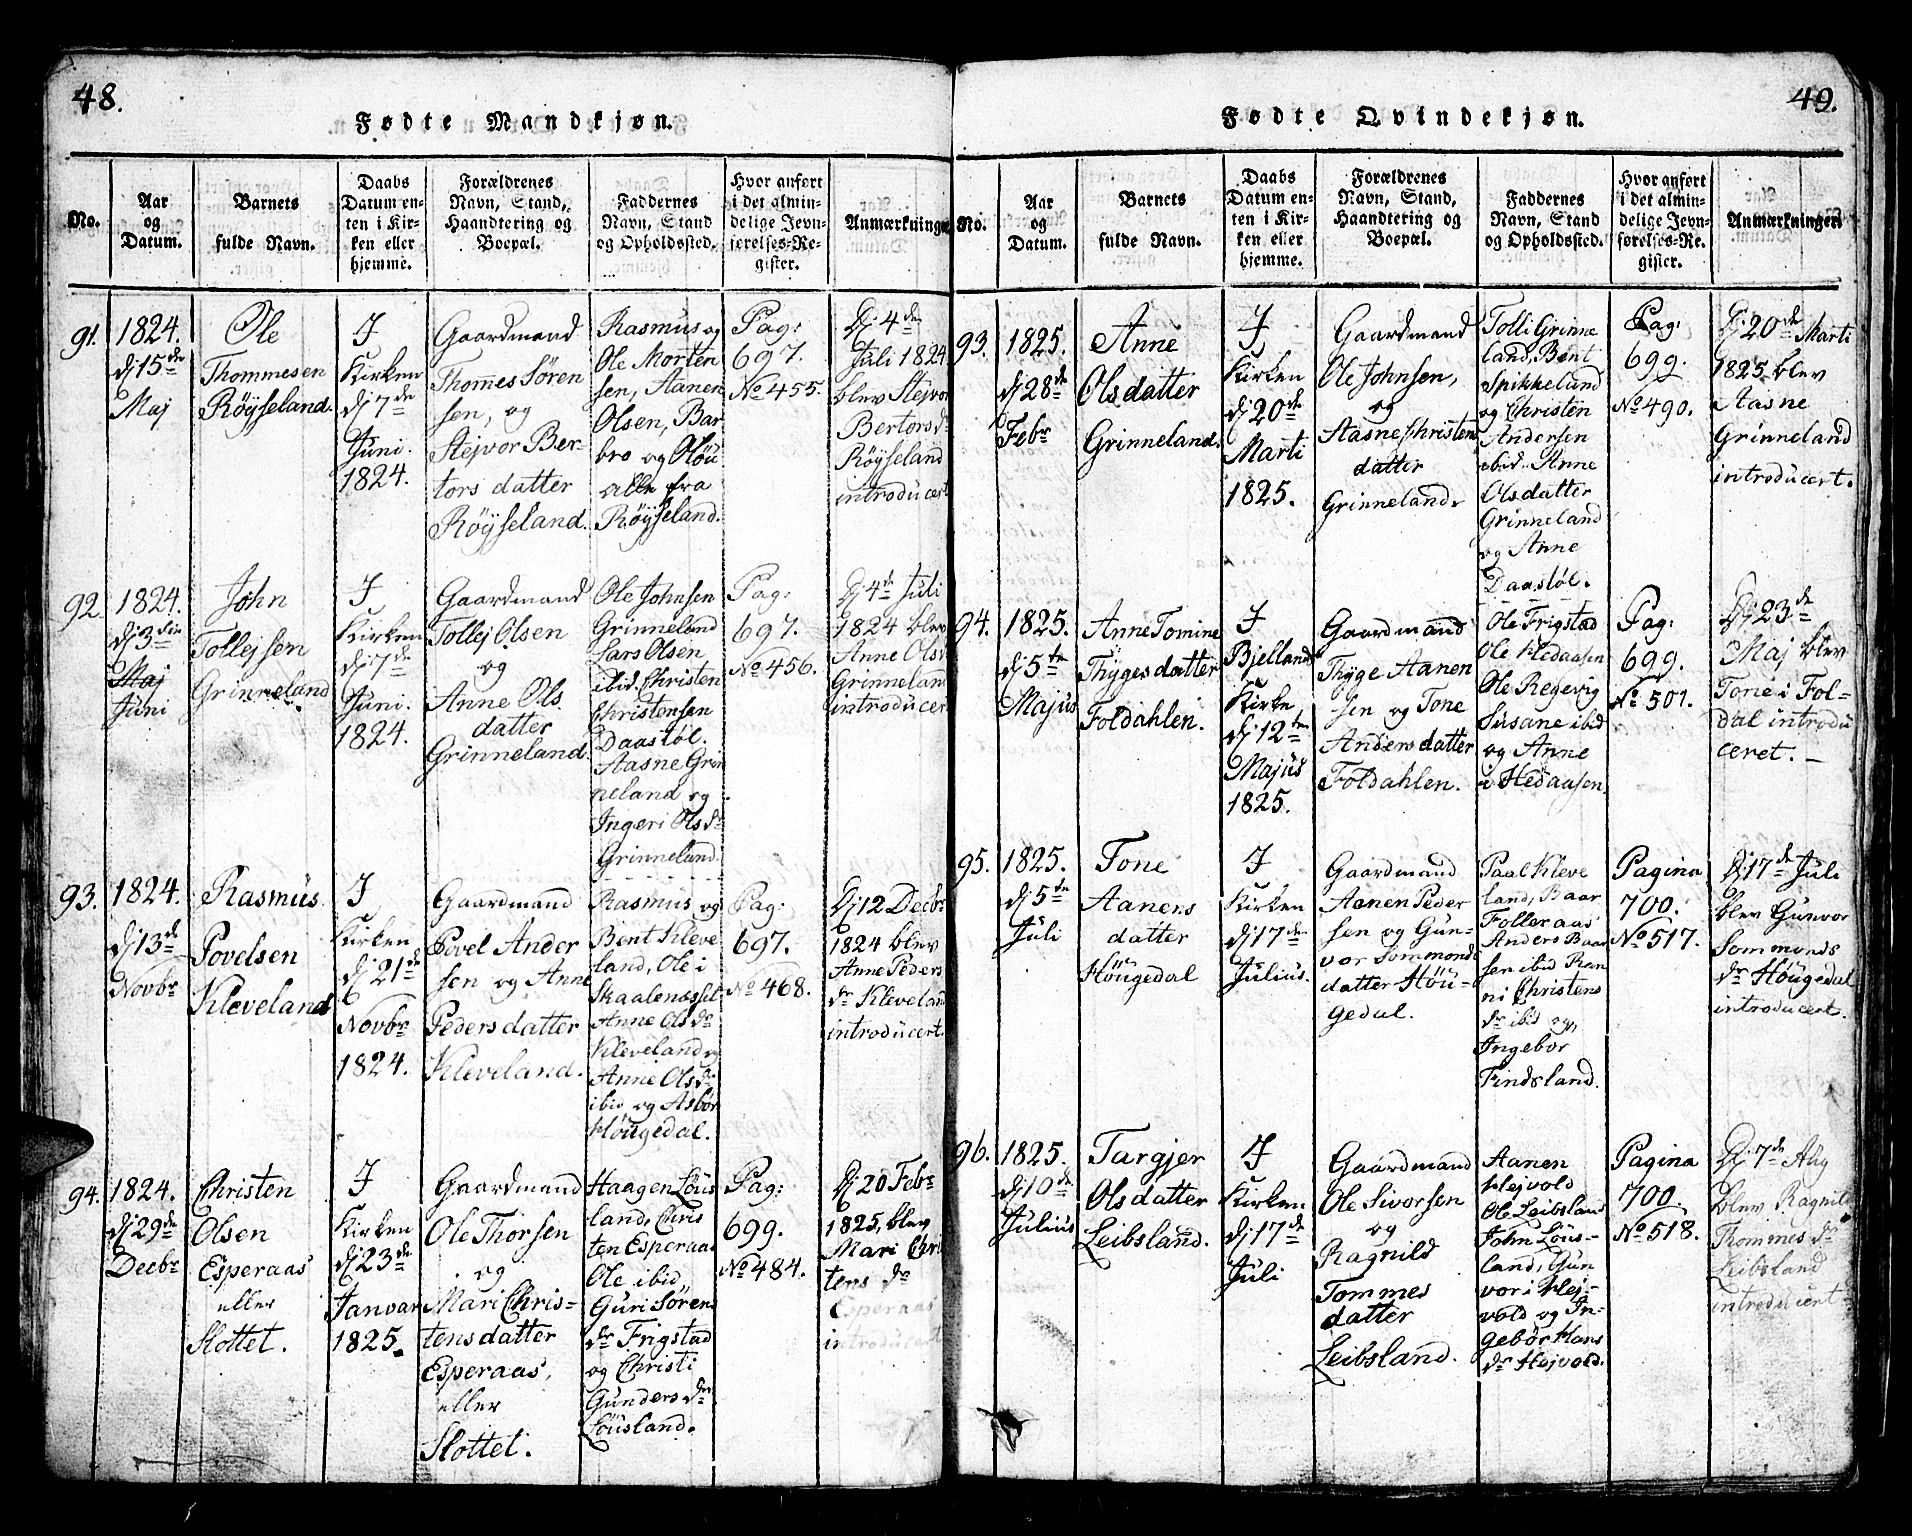 48.
Fødte Mandkjøn.
No.
Aar
og
Datum.
Barnets
fulde Navn.
Daabs
Datum en-
ten i Kir-
ken eller
hjemme.
Forældrenes
Navn, Stand,
Haandtering og
Boepæl.
Faddernes
Navn, Stand
og Opholdssted.
Hvor anført
i det almin-
delige Jevn-
førelses-Re-
gister.
Anmærkninger
91.
1824.
dj 15de
Maj
Ole
Thommesen
Röÿseland.
I
Kirken
dj 7de
Juni.
1824.
Gaardmand
Thomes Sören
sen, og
Stejvor Ber-
tors datter
Röÿseland.
Rasmus og
Ole Morten
sen, Aanen
Olsen, Bar
bro og
alle fra
Röÿseland.
Pag:
697.
No 455.
Dj 4de
Juli 1824
blev Stejvor
Bertors d
Röÿseland
introducert
92.
1824.
dj 3die
Maj
Juni
John
Tollejsen
Grinneland
I
Kirken
dj 7de
Juni.
1824.
Gaardmand
Tollej Olsen
og
Anne Ols
datter
Grinneland.
Ole Johnsen
Grinneland
Lars Olsen
ibid. Christen
Christensen
Daastöl.
Aasne Grin
neland og
Ingeri Ols dr
Grinneland.
Pag:
697.
No 456.
Dj 4de Juli
1824 blev
Anne Ols
Grinnelan
introducer
93.
1824.
dj 13de
Novbr
Rasmus
Povelsen
Kleveland
I
Kirken
dj 21de
Novbr
1824.
Gaardmand
Povel Ander
sen og Anne
Peders datter
Kleveland.
Rasmus og
Bent Kleve
land, Ole i
Skaalenæsset
Anne Ols dr
Kleveland og
Anne Ols dr
ibid og Asbör
Höugedal.
Pag:
697.
No 468.
Dj 12 Decbr
1824 blev
Anne Peders
dr Kleveland
introducert.
94.
1824.
dj 29de
Decbr
Christen
Olsen
Esperaas
eller
Slottet.
I
Kirken
dj 23de
Januar
1825.
Gaardmand
Ole Thorsen
og
Mari Chris-
tens datter
Esperaas,
eller
Slottet.
Haagen Löus
land, Chris
ten Esperaas
Ole ibid,
Guri Sörens
dr Frigstad
og Christi
Gunders dr
Löusland.
Pag:
699.
No 484.
Dj 20 Febr
1825, blev
Mari Chri
tens dr
Esperaas
introducert
49.
Fødte Qvindekjøn.
No.
Aar
og
Datum.
Barnets
fulde Navn.
Daabs
Datum en-
ten i Kir-
ken eller
hjemme.
Forældrenes
Navn, Stand,
Haandtering og
Boepæl.
Faddernes
Navn, Stand
og Opholdssted.
Hvor anført
i det almin-
delige Jevn-
førelses-Re-
gister.
Anmærkninger.
93.
1825.
dj 28de
Febr
Anne
Olsdatter
Grinneland.
I
Kirken
dj 20de
Marti
1825.
Gaardmand
Ole Johnsen,
og
Aasne Christens
datter
Grinneland.
Tolli Grinne
land, Bent
Spikkeland
og Christen
Andersen
ibid. Anne
Olsdatter
Grinneland
og Anne
Daastöl.
Pag:
699.
No 490.
Dj 20de Marti
1825 blev
Aasne
Grinneland
introducert.
94.
1825.
dj 5te
Majus
Anne Tomine
Thÿgesdatter
Foldahlen.
I
Bjelland
Kirke
dj 12te
Majus
1825.
Gaardmand
Thÿge Aanen
sen og Tone
Anders datter
Foldahlen.
Ole Frigstad
Ole Hedaasen
Ole Regevig
Susane ibid
og Anne
i Hedaasen.
Pag:
699.
No 501.
Dj 23de
Maj blev
Tone i Fol-
dal introdu
ceret. –
95.
1825.
dj 5te
Juli
Tone
Aanens
datter
Höugedal
I
Kirken
dj 17de
Julius.
Gaardmand
Aanen Peder
sen og Gun-
vor Sommonds
datter Höu-
gedal.
Paal Kleve
land, Baar
Folleraas
Anders Baar
sen ibid Ren
ni Christens
dr ibid og,
Ingebor
Findsland.
Pagina
700.
No 517.
Dj 17de Juli
blev Gunvor
Sommonds
dr Höugedal
introducert.
96.
1825.
dj 10de
Julius
Targjer
Olsdatter
Leibsland.
I
Kirken
dj 17de
Juli
Gaardmand
Ole Sivorsen
og
Ragnild
Tommes
datter
Leibsland.
Aanen
Hejvold
Ole Leibsland
John Löus-
land, Gun
vor i Hej-
vold og In-
gebör Hans
dr Hejvold.
Pagina
700.
No 518.
Dj 7de Aug
blev Ragnild
Thommes dr
Leibsland
introducert